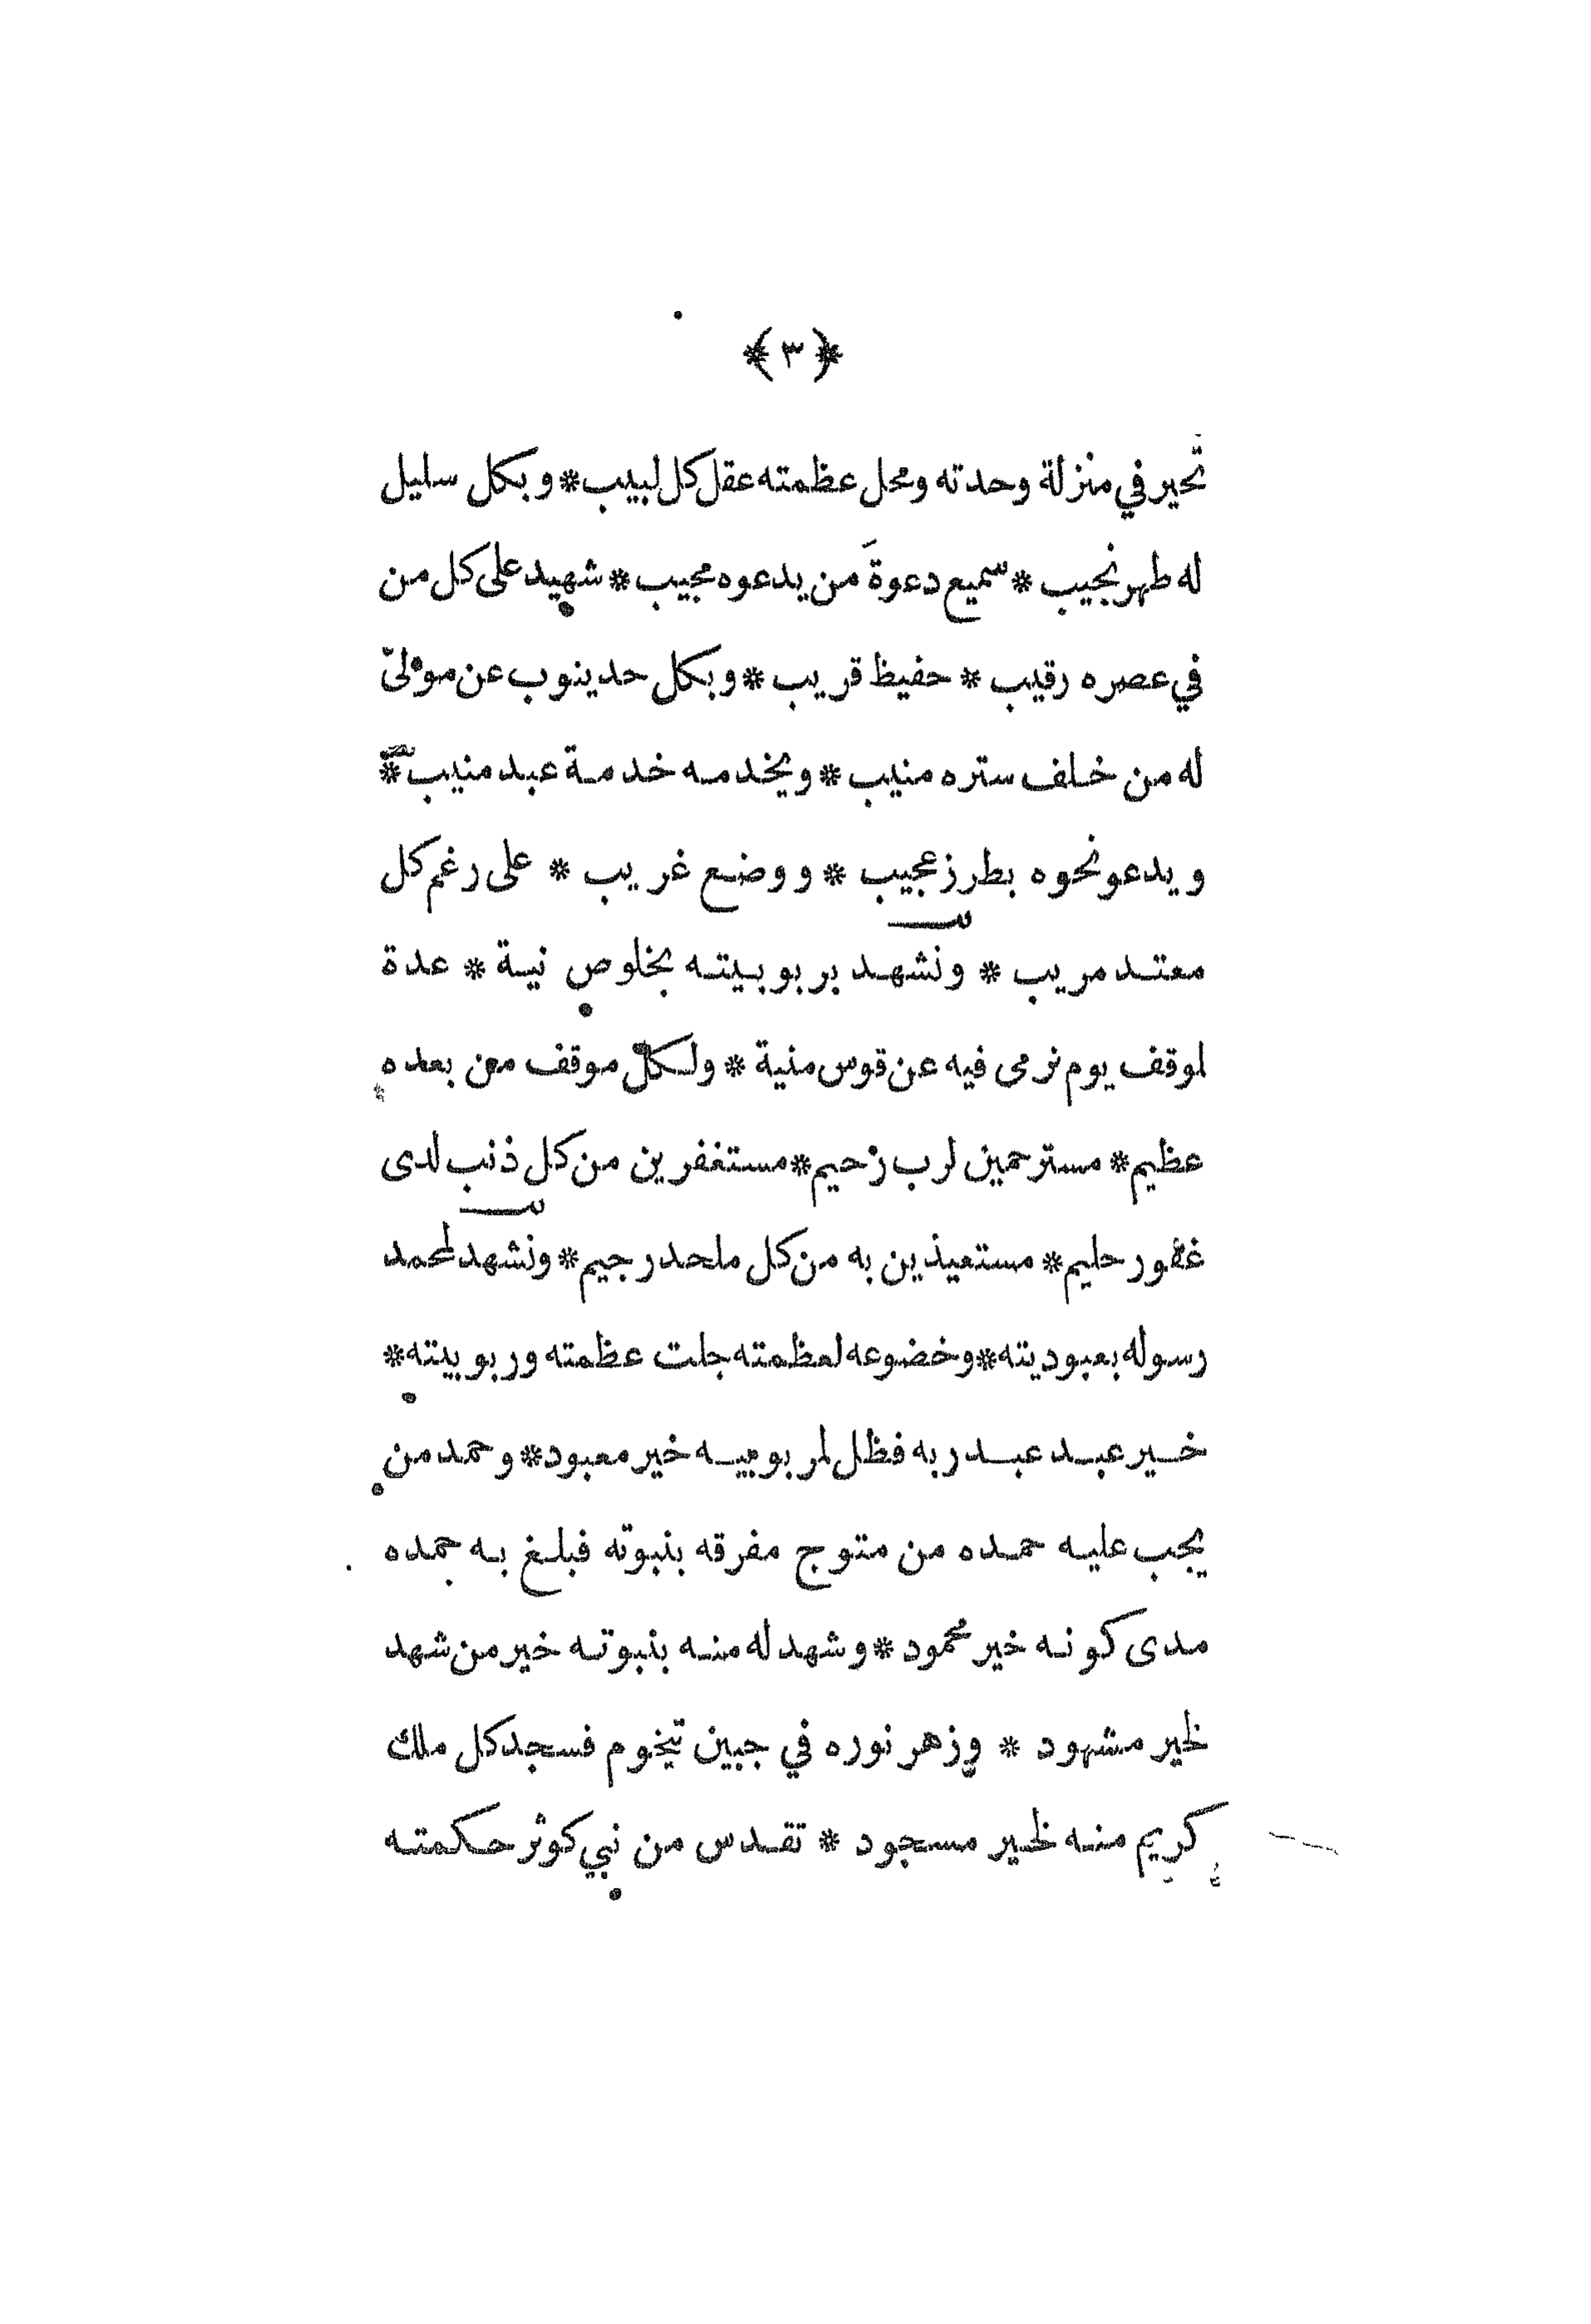 ﴿ ٣ ﴾
تحير في منزلة وحدته ومحل عظمته عقل كل لبيب * وبكل سليل
له طهر نجيب * سميع دعوةَ من يدعوه مجيب * شهيد على كل من
في عصره رقيب * حفيظ قريب * وبكل حد ينوب عن مولىّ
له من خلف ستره منيب * ويخدمه خدمة عبد منيب *
ويدعو نحوه بطرز عجيب * ووضع غريب * على رغم كل
معتد مريب * ونشهد بربوبيته بخلوص نية * عدة
لموقف يوم نرمى فيه عن قوس منية * ولكل موقف من بعده
عظيم * مسترحمين لرب رحيم * مستغفرين من كل ذنب لدى
غفور حليم * مستعيذين به من كل ملحد رجيم * ونشهد لمحمد
رسوله بعبوديته * وخضوعه لعظمته جلت عظمته وربوبيته *
خير عبد عبد ربه فظل لمربوبيه خير معبود * وحمد من
يجب عليه حمده من متوج مفرقه بنبوته فبلغ به حمده
مدى كونه خير محمود * وشهد له منه بنبوته خير من شهد
لخير مشهود * وزهر نوره في جبين تيخوم فسجد كل ملك
كريم منه لخير مسجود * تقدس من نبي كوثر حكمته